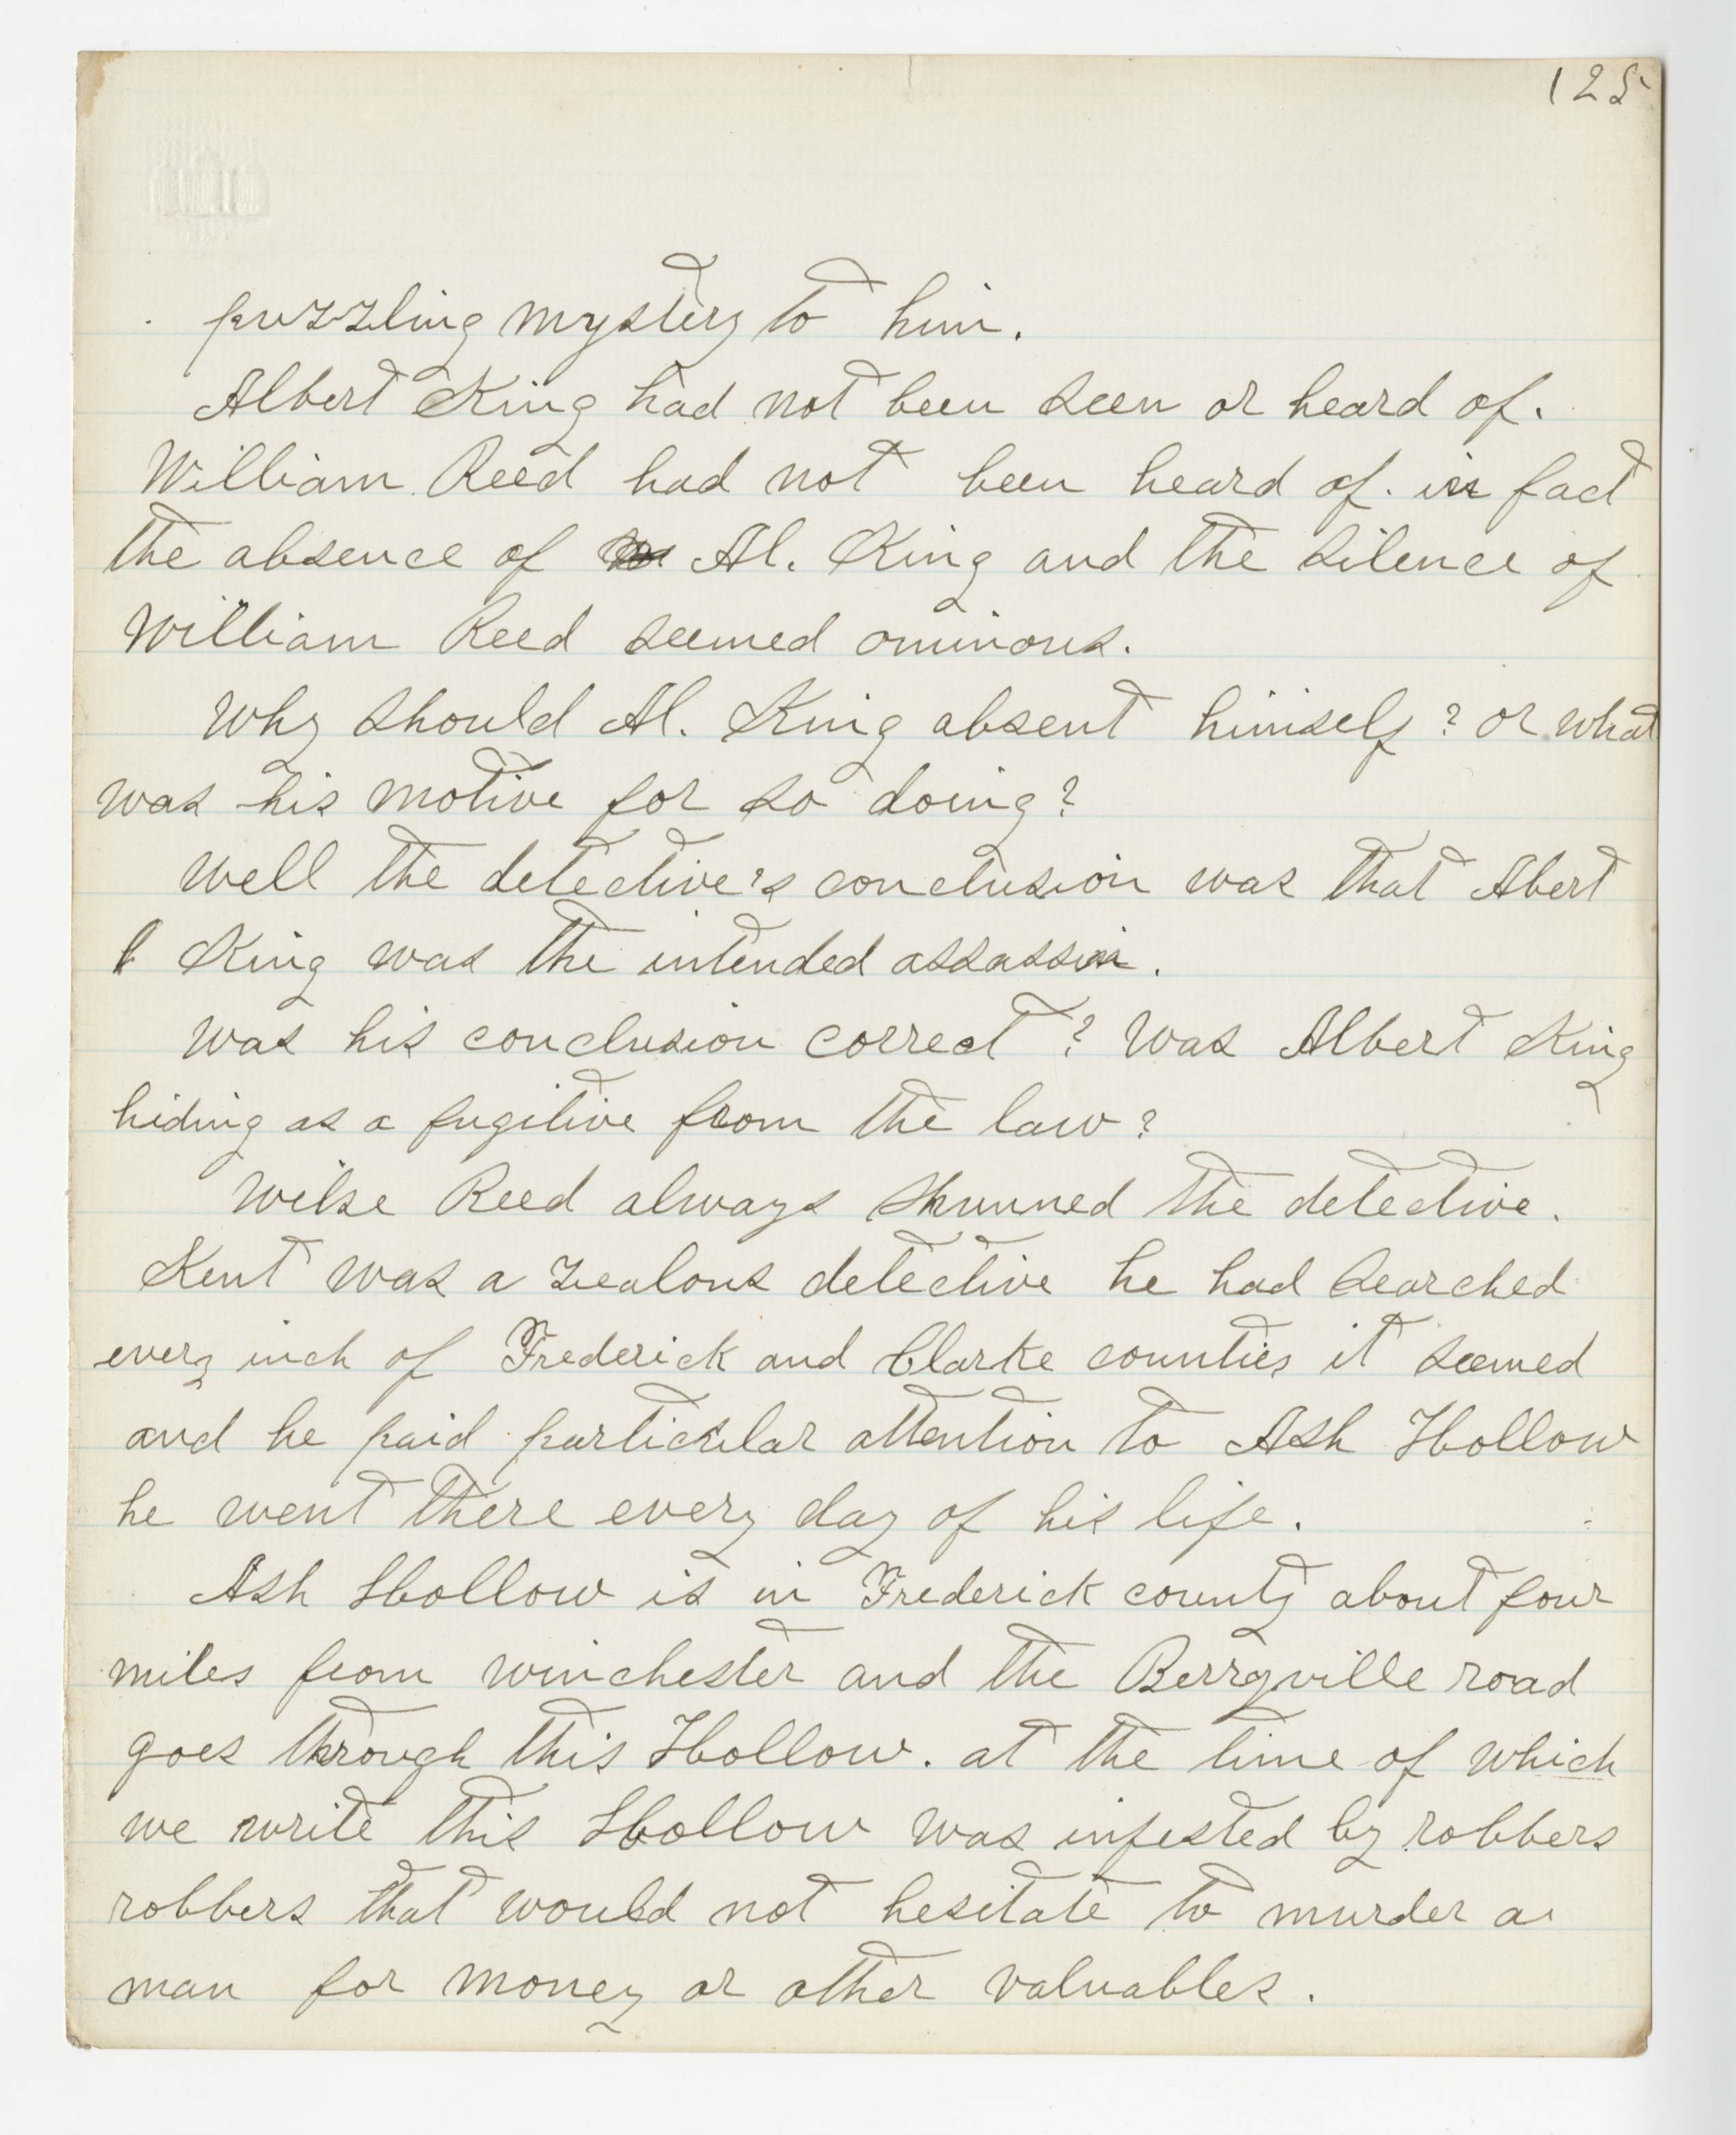 125
puzzling mystery to him.
Albert King had not been seen or heard of.
William Reed had not been heard of. in fact
the absence of Al. King and the silence of
William Reed seemed ominous.
Why should Al. King absent himself? or what
was his motive for so doing?
Well the detective's conclusion was that Abert
King was the intended assassin.
Was his conclusion correct? Was Albert King
hiding as a fugitive from the law?
Wilse Reed always shunned the detective.
Kent was a zealous detective he had searched
every inch of Frederick and Clarke counties it seemed
and he paid particular attention to Ash Hollow
he went there every day of his life.
Ash Hollow is in Frederick county about four
miles from winchester and the Berryville road
goes through this Hollow. at the time of which
we write this Hollow was infested by robbers
robbers that would not hesitate to murder a
man for money or other valuables.